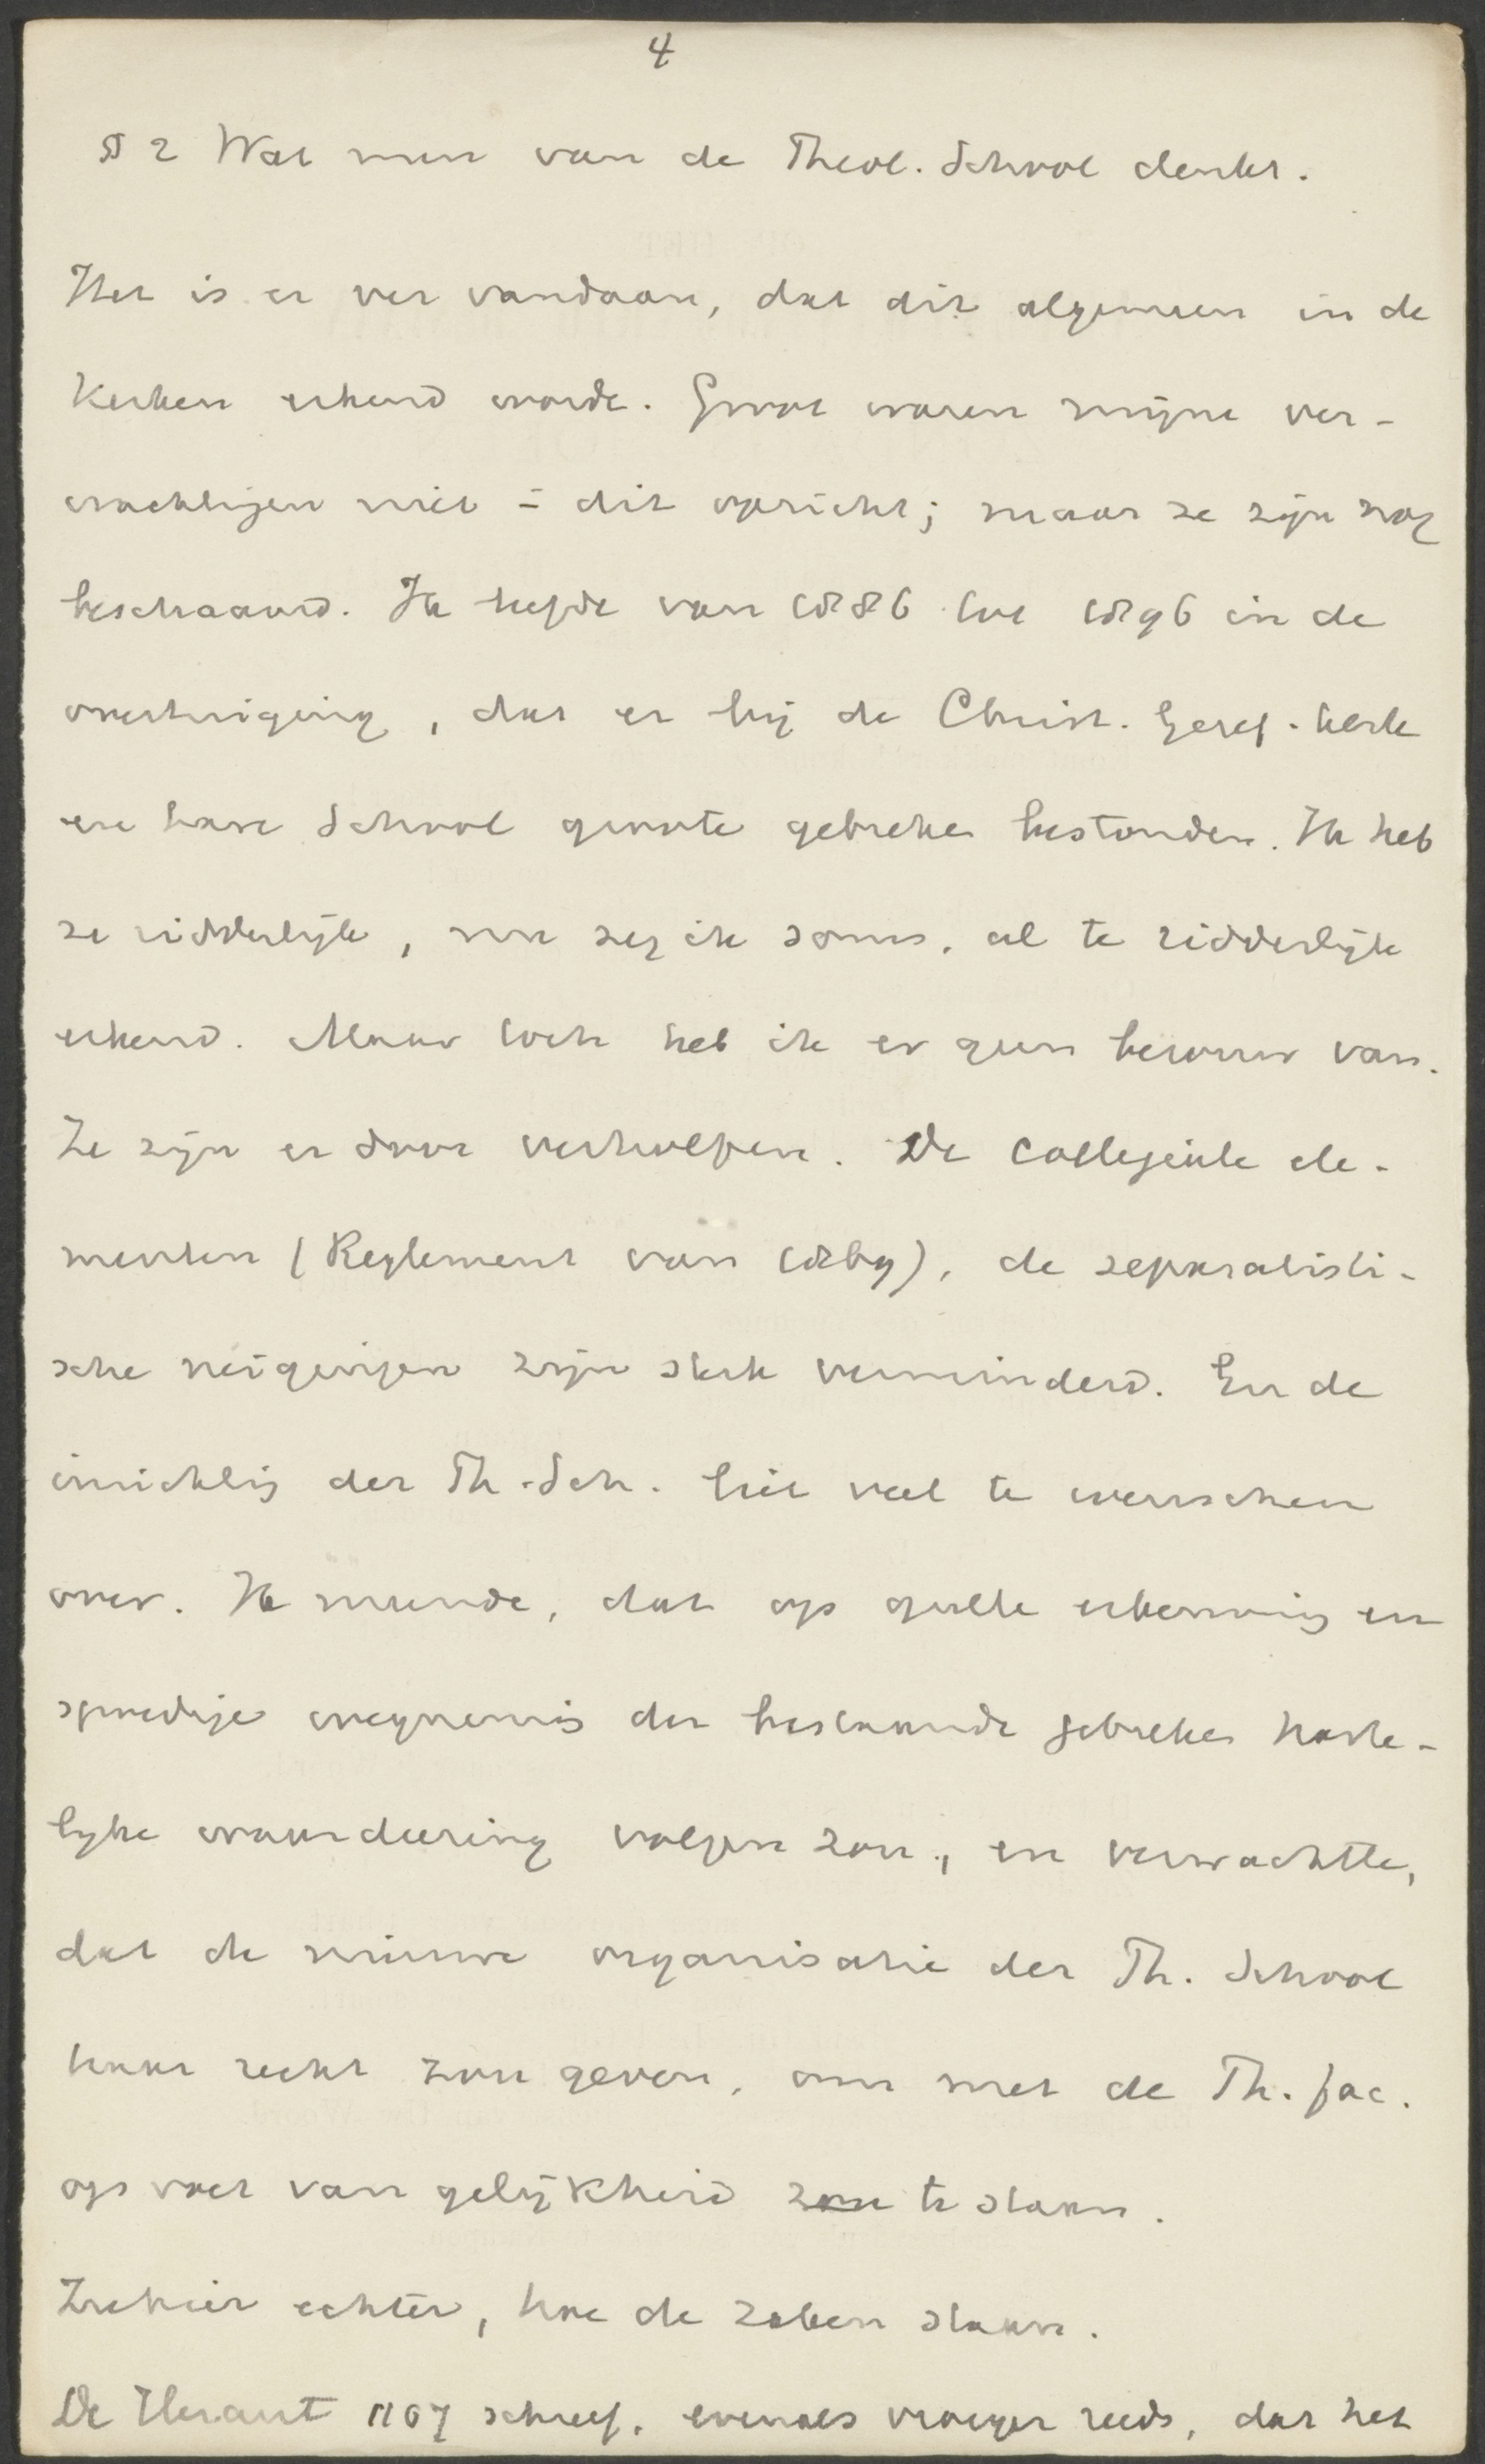 4
§ 2 Wat men van de Theol. School denkt.
Het is er ver vandaan, dat dit algemeen in de
Kerken erkend worde. Groot waren mijne ver-
wachtingen niet in dit opzicht; maar ze zijn nog
beschaamd. Ik leefde van 1886 tot 1896 in de
overtuiging, dat er bij de Christ. Geref. kerk
en hare School groote gebreken bestonden. Ik heb
ze ridderlijk, nu zeg ik soms, al te ridderlijk
erkend. Maar toch heb ik er geen berouw van.
Ze zijn er door verholpen. De collegiale ele-
menten (Reglement van 1869), de separatisti-
sche neigingen zijn sterk verminderd. En de
inrichting der Th. Sch. liet veel te wenschen
over. Ik meende, dat op gulle erkenning en
spoedige wegneming der bestaande gebreken harte-
lijke waardeering volgen zou, en verwachtte,
dat de nieuwe organisatie der Th. School
haar recht zou geven, om met de Th. fac.
op voet van gelijkheid zou te staan.
Zie hier echter, hoe de zaken staan.
De Heraut 1107 schreef, evenals vroeger reeds, dat het